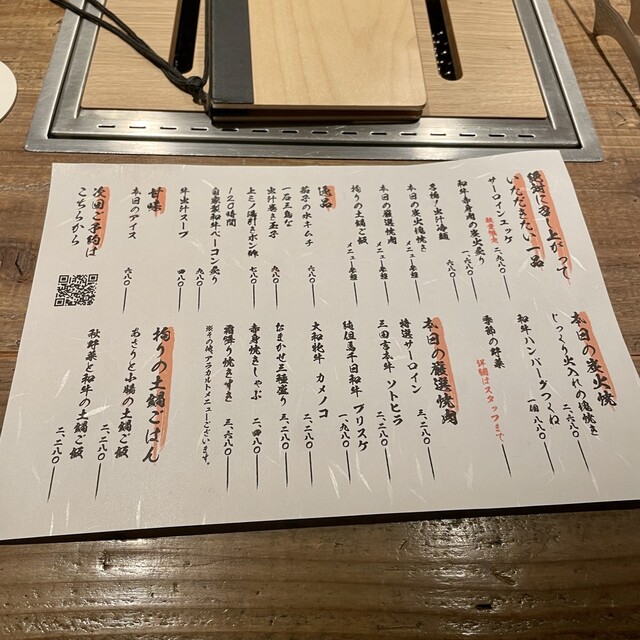 絶対に召し上がって
いただきたい一品
サーロインユッケ
数量限定 二、九八〇
和牛赤身肉の炭火炙り
一、六八〇
名物!出汁冷麺
一、二八〇
本日の炭火塊焼き
メニュー参照
本日の厳選焼肉
メニュー参照
拘りの土鍋ご飯
メニュー参照
逸品
茄子の水キムチ
六八〇
一石三鳥な
出汁巻き玉子
九八〇
上ミノ湯引きポン酢
七八〇
120時間
自家製和牛ベーコン炙り
九八〇
牛出汁スープ
四八〇
甘味
本日のアイス
六八〇
次回ご予約は
こちらから
本日の炭火焼
じっくり火入れの塊焼き
二、六八〇
和牛ハンバーグつくね
一個 八八〇
季節の野菜
詳細はスタッフまで
本日の厳選焼肉
特選サーロイン
三、二八〇
三田吉本牛 ソトヒラ
二、二八〇
純但馬千日和牛 ブリスケ
一、九八〇
大和牝牛 カメノコ
二、二八〇
おまかせ三種盛り
三、二八〇
赤身焼きしゃぶ
二、四八〇
霜降り焼きすき
三、六八〇
※その他、アラカルトメニューございます。
拘りの土鍋ごはん
あさりと小腸の土鍋ご飯
二、二八〇
秋野菜と和牛の土鍋ご飯
二、二八〇